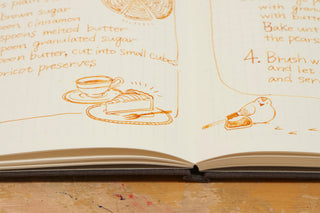 s plain
brown sugar
oon cinnamon
spoons melted butter
poon granulated sugar
poon butter, cut into small cubes
pricot preserves
with gra
with butter
Bake unt
the pears
4. Brush w
and let
and ser